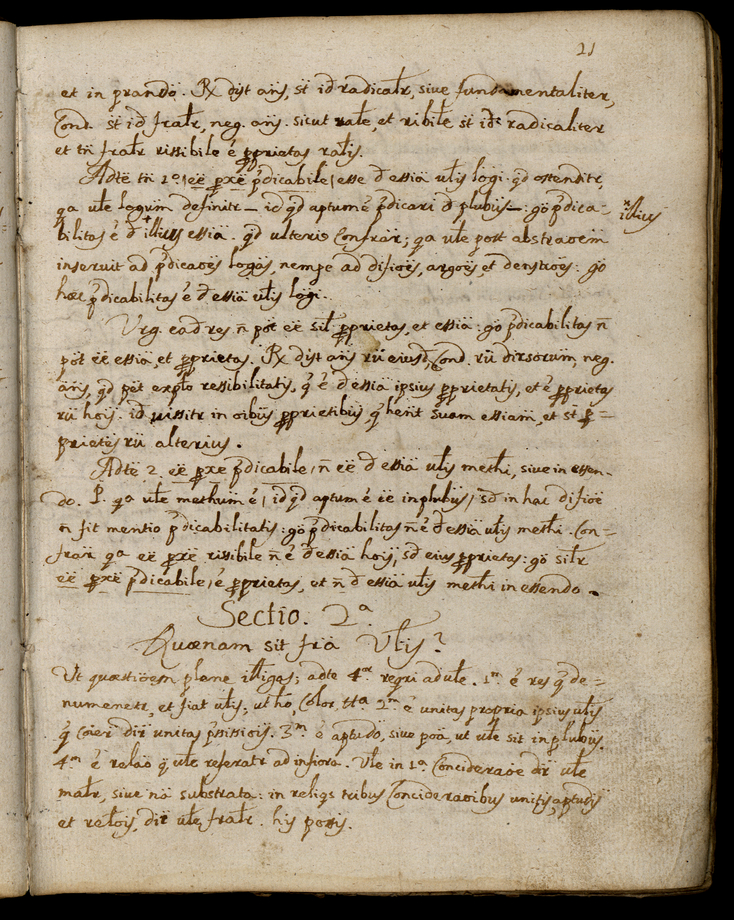 21
et in prandō. Rx dist ans, st̄ id radicalr̄, sive fundamentaliter,
Cond. st̄ id fralr̄, neg. ans. sicut rale, et ribile st̄ id radicaliter
et tn̄ fralr̄ rissibile ē pprietas ralis.
Adte tn̄ 1º, eē pxē pdicabile, esse d essia ulis logi. qd ostenditr,
qa ule logum definitr — id qd aptum ē pdicari d plubus — : go pdica-
bilitas ē d + illius essia. qd ulterio Confrar; qa ule post abstraoem
× illius
inseruit ad pdicaoēs logas, nempe ad difioēs, argoēs, et denstioēs: go
haec pdicabilitas ē d essia ulis logi.
Urg. eadres n̄ pot eē sil pprietas, et essia: go pdicabilitas n̄
pot eē essia, et pprietas. Rx dist ans rū eiusd, Cond. rū dirsorum, neg.
ans, qd pēt explo ressibilitatis, q ē d essia ipsius pprietatis, et ē pprietas
rū hois. id uissitr in oibus pprietibus q hent suam essiam, et st̄ p=
prietes rū alterius.
Adte 2. eē pxe pdicabile, n̄ eē d essia ulis methi, sive in essen-
do. P. qa ule methum ē, id qd aptum ē eē in plubus, sd in hac difioē
n̄ fit mentio pdicabilitatis: go pdicabilitas n̄ ē d essia ulis methi. Con-
frar qa eē pxē rissibile n̄ ē d essia hois, sd eius pprietas: go silr
eē pxē pdicabile, ē pprietas, et n̄ d essia ulis methi in essendo.
Sectio. 2ª
Quænam sit fra Ulis?
Ut quæstioēm plane itligas; adte 4or reqri ad ule. 1m ē res q de-
numenetr, et fiat ulis; ut ho, Color, tta 2m ē unitas propria ipsius ulis
q coier dir unitas pssisiois. 3m ē aptudo, sive poa, ut ule sit in plubus.
4m ē relao q ule referatr ad infiora. Ule in 1ª Concideraoē dir ule
malr, sive nā substrata: in reliqs tribus Concideraoibus unitis, aptudis
et relois, dir ule fralr. his positis.